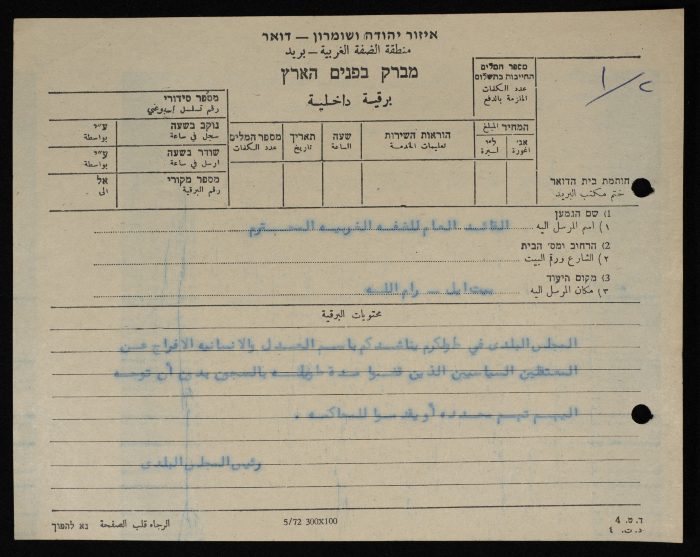 איזור יהודה ושומרון — דואר
منطقة الضفة الغربية — بريد
מברק בפנים הארץ
برقية داخلية
מספר המלים
החייבות בתשלום
عدد الكلمات
الملزمة بالدفع
המחיר المبلغ
אג׳ ל״י
اغورة ليرة
הוראות השירות
تعليمات الخدمة
שעה
الساعة
תאריך
تاريخ
מספר המלים
عدد الكلمات
מספר סידורי
رقم تسلسل
נוקב בשעה ע״י
سجل في ساعة بواسطة
שודר בשעה ע״י
ارسل في ساعة بواسطة
מספר מקורי אל
رقم البرقية الى
חותמת בית הדואר
ختم مكتب البريد
1) שם הנמען
١) اسم المرسل اليه القائد العام للضفه الغربيه المحترم
2) הרחוב ומס׳ הבית
٢) الشارع ورقم البيت
3) מקום היעוד
٣) مكان المرسل اليه بيت ايل — رام الله
محتويات البرقية
المجلس البلدي في طولكرم يناشدكم باسم العدل والانسانيه الافراج عن
المعتقلين السياسيين الذين قضوا مدة طويله بالسجن بدون أن توجه
اليهم تهم محدده أو يقدموا للمحاكمه .
رئيس المجلس البلدي
ד. ט. 4
د. ت. ٤
5/72 300X100
الرجاء قلب الصفحة נא להפוך